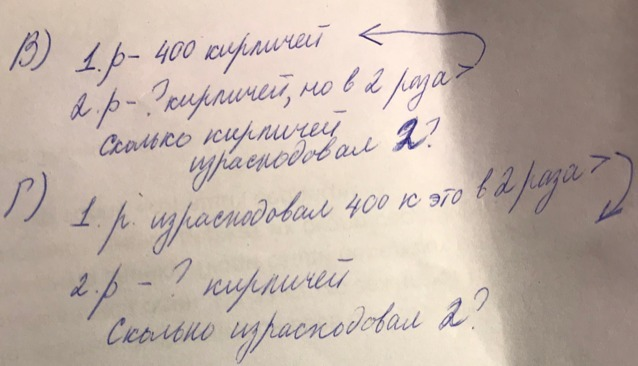 В) 1.р- 400 кирпичей
2.р- ? кирпичей, но в 2 раза >
Сколько кирпичей
израсходовал 2?
Г) 1.р. израсходовал 400 к это в 2 раза >
2.р - ? кирпичей
Сколько израсходовал 2?